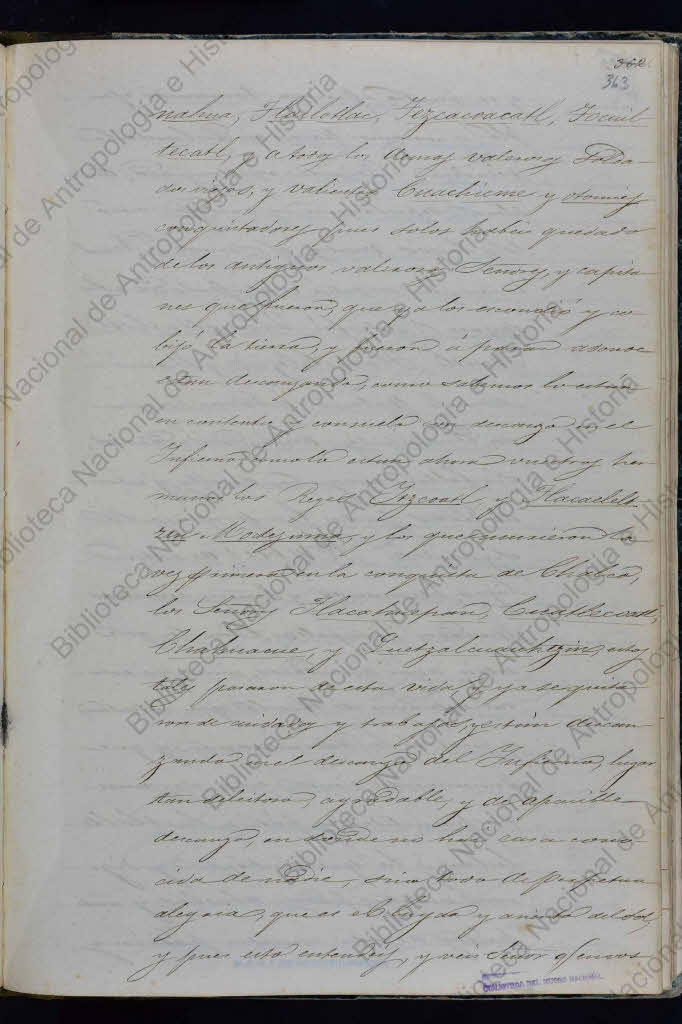 362
363
nahua, Tlailotlac, Tezcacoacatl, Tocuil
tecatl, y a todos los demas valerosos Solda-
dos viejos, y valientes Cuachicme y otomies
conquistadores pues solos habeis quedado
de los antiguos valerosos Señores, y capita
nes que fueron, que ya los escondió y co
bijó la tierra, y fueron á parar adonde
estan descanzando, como sabemos lo están
en contento y consuelo en descanzo en el
Infierno como lo estan ahora vuestros her
manos los Reyes Itzcoatl y Tlacaelelt-
zin Moctezuma, y los que murieron la
vez primera en la conquista de Chalco,
los Señores Tlacahuepan, Cuatlecoatl,
Chahuacue, y Quetzalcuauhtzin, estos
tales pasaron de esta vida, y ya se quita
ron de cuidados y trabajos y están descan
zando en el descanzo del Infierno, lugar
tan deleitoso, agradable, y de apacible
descanzo, en donde no hay casa cono-
cida de nadie, sino todo de perpetua
alegria, que es el y asiento del Sol,
y pues esto entendeis, y veis Señor
BIBLIOTECA DEL MUSEO NACIONAL
Biblioteca Nacional de Antropología e Historia